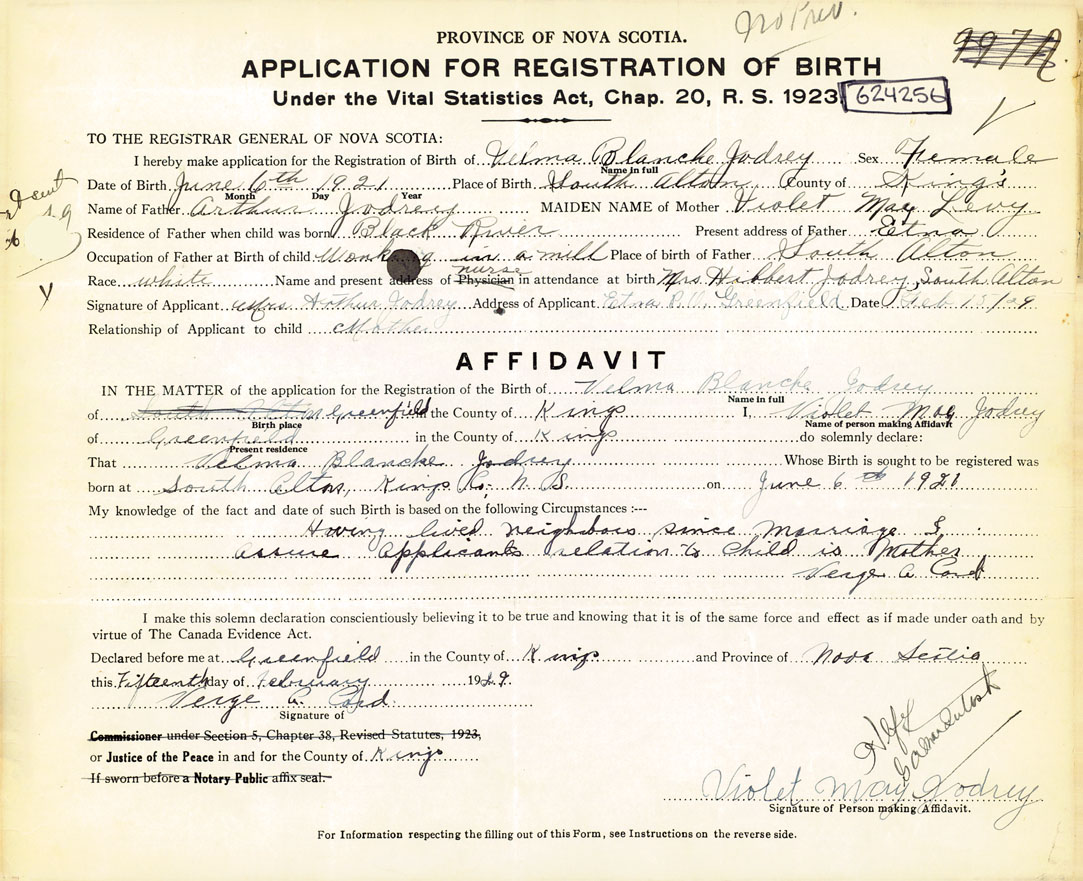 No Prev.
PROVINCE OF NOVA SCOTIA.
APPLICATION FOR REGISTRATION OF BIRTH
Under the Vital Statistics Act, Chap. 20, R. S. 1923
624256
TO THE REGISTRAR GENERAL OF NOVA SCOTIA:
I hereby make application for the Registration of Birth of Velma Blanche Jodrey Sex Female
Name in full
Date of Birth June 6th 1921 Place of Birth South Alton County of King's
Month Day Year
Name of Father Arthur Jodrey MAIDEN NAME of Mother Violet May Levy
Residence of Father when child was born Black River Present address of Father Etna
Occupation of Father at Birth of child in a mill Place of birth of Father South Alton
nurse
Race white Name and present address of Physician in attendance at birth Mrs Hibbert Jodrey South Alton
Signature of Applicant Mrs Arthur Jodrey Address of Applicant Etna Greenfield Date Feb 15/29
Relationship of Applicant to child Mother
AFFIDAVIT
IN THE MATTER of the application for the Registration of the Birth of Velma Blanche Jodrey
Name in full
of South Alton Greenfield the County of Kings I, Violet May Jodrey
Birth place Name of person making Affidavit
of Greenfield in the County of Kings do solemnly declare:
Present residence
That Velma Blanche Jodrey Whose Birth is sought to be registered was
born at South Alton, Kings Co; N. S. on June 6th 1921
My knowledge of the fact and date of such Birth is based on the following Circumstances :---
Having lived neighbors since Marriage I
assure Applicants relation to Child is Mother
Verge A
I make this solemn declaration conscientiously believing it to be true and knowing that it is of the same force and effect as if made under oath and by
virtue of The Canada Evidence Act.
Declared before me at Greenfield in the County of Kings and Province of Nova Scotia
this Fifteenth day of February 1929.
Verge A.
Signature of
Commissioner under Section 5, Chapter 38, Revised Statutes, 1923,
or Justice of the Peace in and for the County of Kings
If sworn before a Notary Public affix seal.
Violet May Jodrey
Signature of Person making Affidavit.
For Information respecting the filling out of this Form, see Instructions on the reverse side.